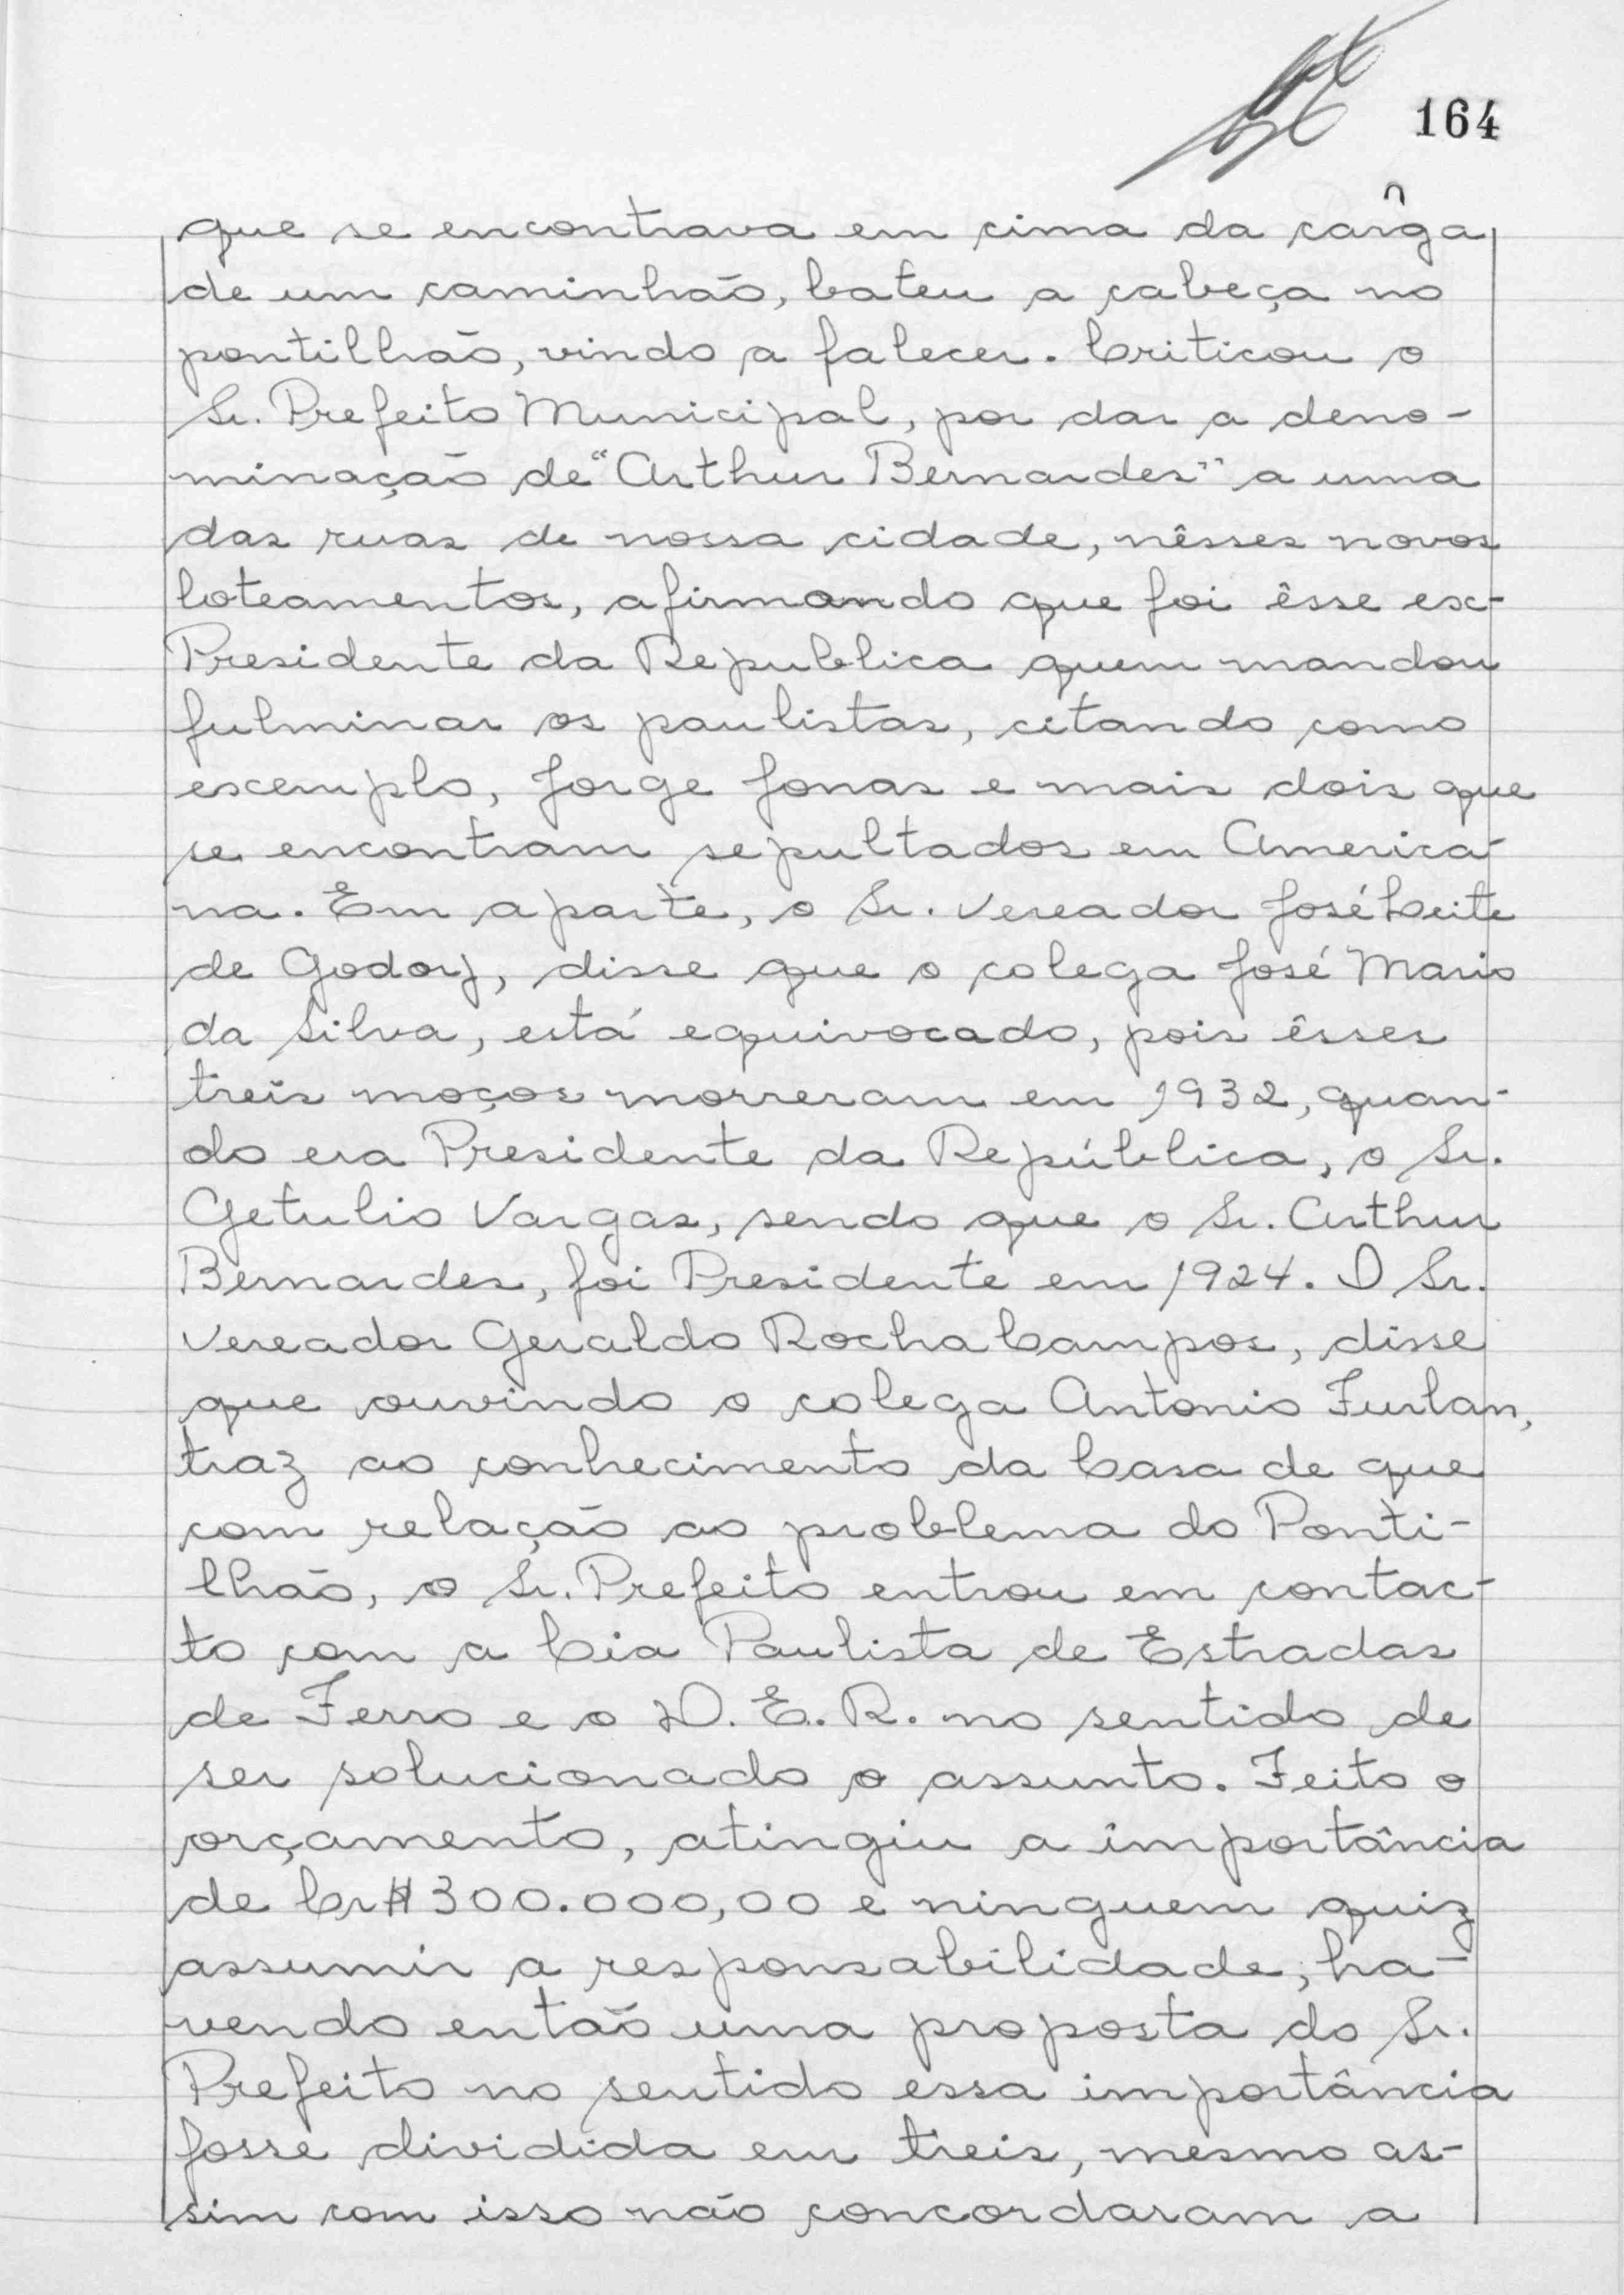 164
que se encontrava em cima da carga
de um caminhão, bateu a cabeça no
pontilhão, vindo a falecer. Criticou o
Sr. Prefeito Municipal, por dar a deno-
minação de "Arthur Bernardes" a uma
das ruas de nossa cidade, nêsses novos
loteamentos, afirmando que foi êsse ex-
Presidente da Republica quem mandou
fulminar os paulistas, citando como
exemplo, Jorge Jonas e mais dois que
se encontram sepultados em America-
na. Em aparte, o Sr. Vereador José Leite
de Godoy, disse que o colega José Mario
da Silva, está equivocado, pois êsses
treis moços morreram em 1932, quan-
do era Presidente da República, o Sr.
Getulio Vargas, sendo que o Sr. Arthur
Bernardes, foi Presidente em 1924. O Sr.
Vereador Geraldo Rocha Campos, disse
que ouvindo o colega Antonio Furlan,
traz ao conhecimento da Casa de que
com relação ao problema do Ponti-
lhão, o Sr. Prefeito entrou em contac-
to com a Cia Paulista de Estradas
de Ferro e o D. E. R. no sentido de
ser solucionado o assunto. Feito o
orçamento, atingiu a importância
de Cr$ 300.000,00 e ninguem quiz
assumir a responsabilidade, ha-
vendo então uma proposta do Sr.
Prefeito no sentido essa importância
fosse dividida em treis, mesmo as-
sim com isso não concordaram a